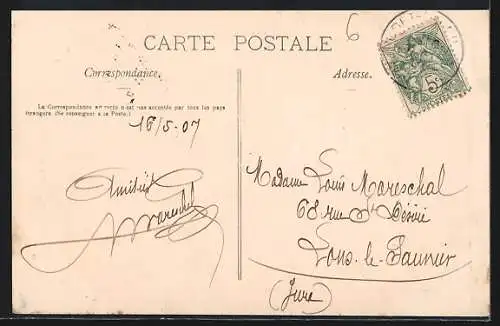 6
CARTE POSTALE
Correspondance.
Adresse.
La Correspondance au recto n'est pas acceptée par tous les pays
étrangers. (Se renseigner à la Poste.)
16/5-07
Amitiés
Mareschal
Madame Louis Mareschal
68 rue St Désiré
Lons-le-Saunier
(Jura)
5c